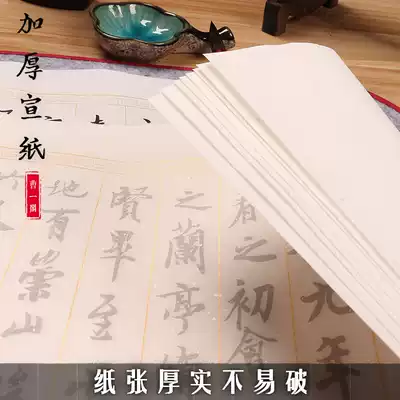 加厚宣纸
九年
之初會
之蘭亭
賢畢至
地有崇山
纸张厚实不易破